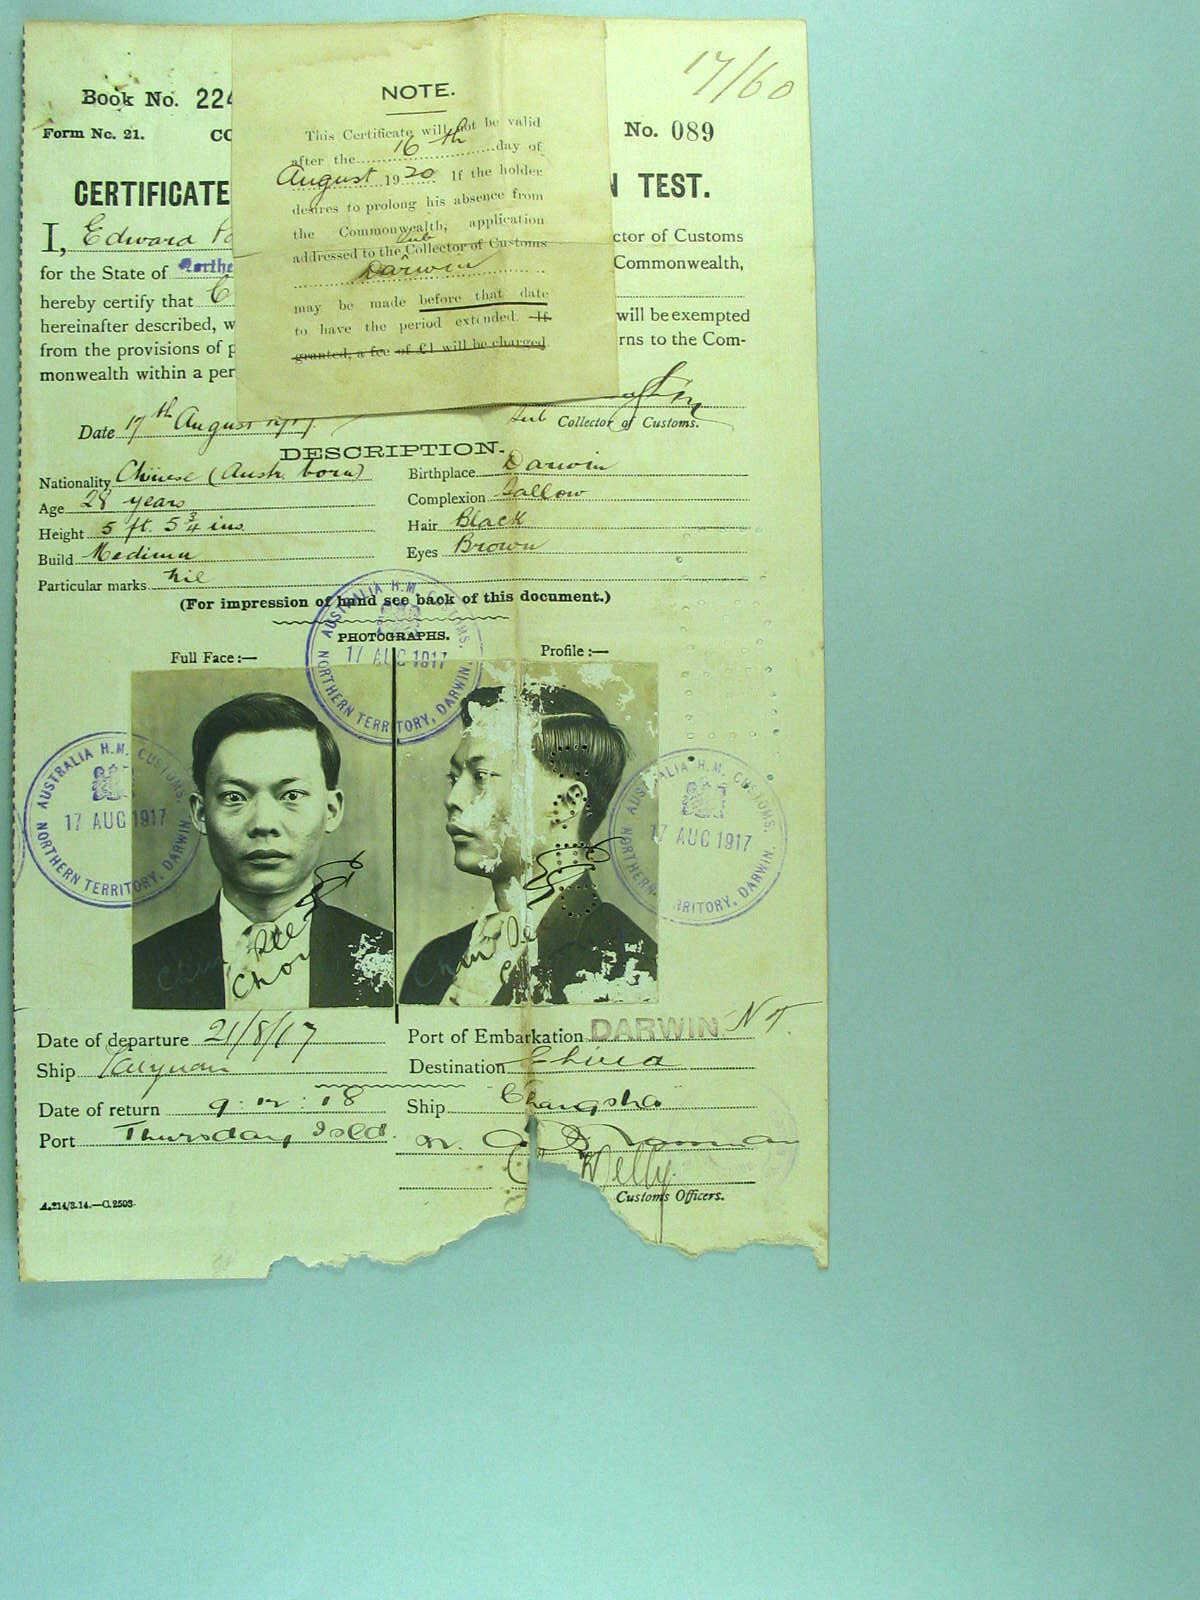 17/60
Book No. 224
Form No. 21.
No. 089
CERTIFICATE
N TEST.
I, Edward
ctor of Customs
for the State of Northe
Commonwealth,
hereby certify that C
hereinafter described, w
will be exempted
from the provisions of p
rns to the Com-
monwealth within a per
NOTE.
This Certificate will not be valid
after the 16th day of
August 1920 If the holder
desires to prolong his absence from
the Commonwealth, application
addressed to the Sub Collector of Customs
Darwin
may be made before that date
to have the period extended. If
granted, a fee of £1 will be charged
Date 17th August 1917
Sub Collector of Customs.
DESCRIPTION.
Nationality Chinese (Austr. born)
Birthplace Darwin
Age 28 years
Complexion Sallow
Height 5 ft. 5 3/4 ins
Hair Black
Build Medium
Eyes Brown
Particular marks nil
(For impression of hand see back of this document.)
PHOTOGRAPHS.
Full Face :—
Profile :—
AUSTRALIA H.M. CUSTOMS.
17 AUG 1917
NORTHERN TERRITORY, DARWIN.
AUSTRALIA H.M. CUSTOMS.
17 AUG 1917
NORTHERN TERRITORY, DARWIN.
AUSTRALIA H.M. CUSTOMS.
17 AUG 1917
NORTHERN TERRITORY, DARWIN.
Chin
Chin
Date of departure 21/8/17
Port of Embarkation DARWIN N.T.
Ship Taiyuan
Destination China
Date of return 9:12:18
Ship Changsha
Port Thursday Isld.
Customs Officers.
A.214/3.14.—C.2503